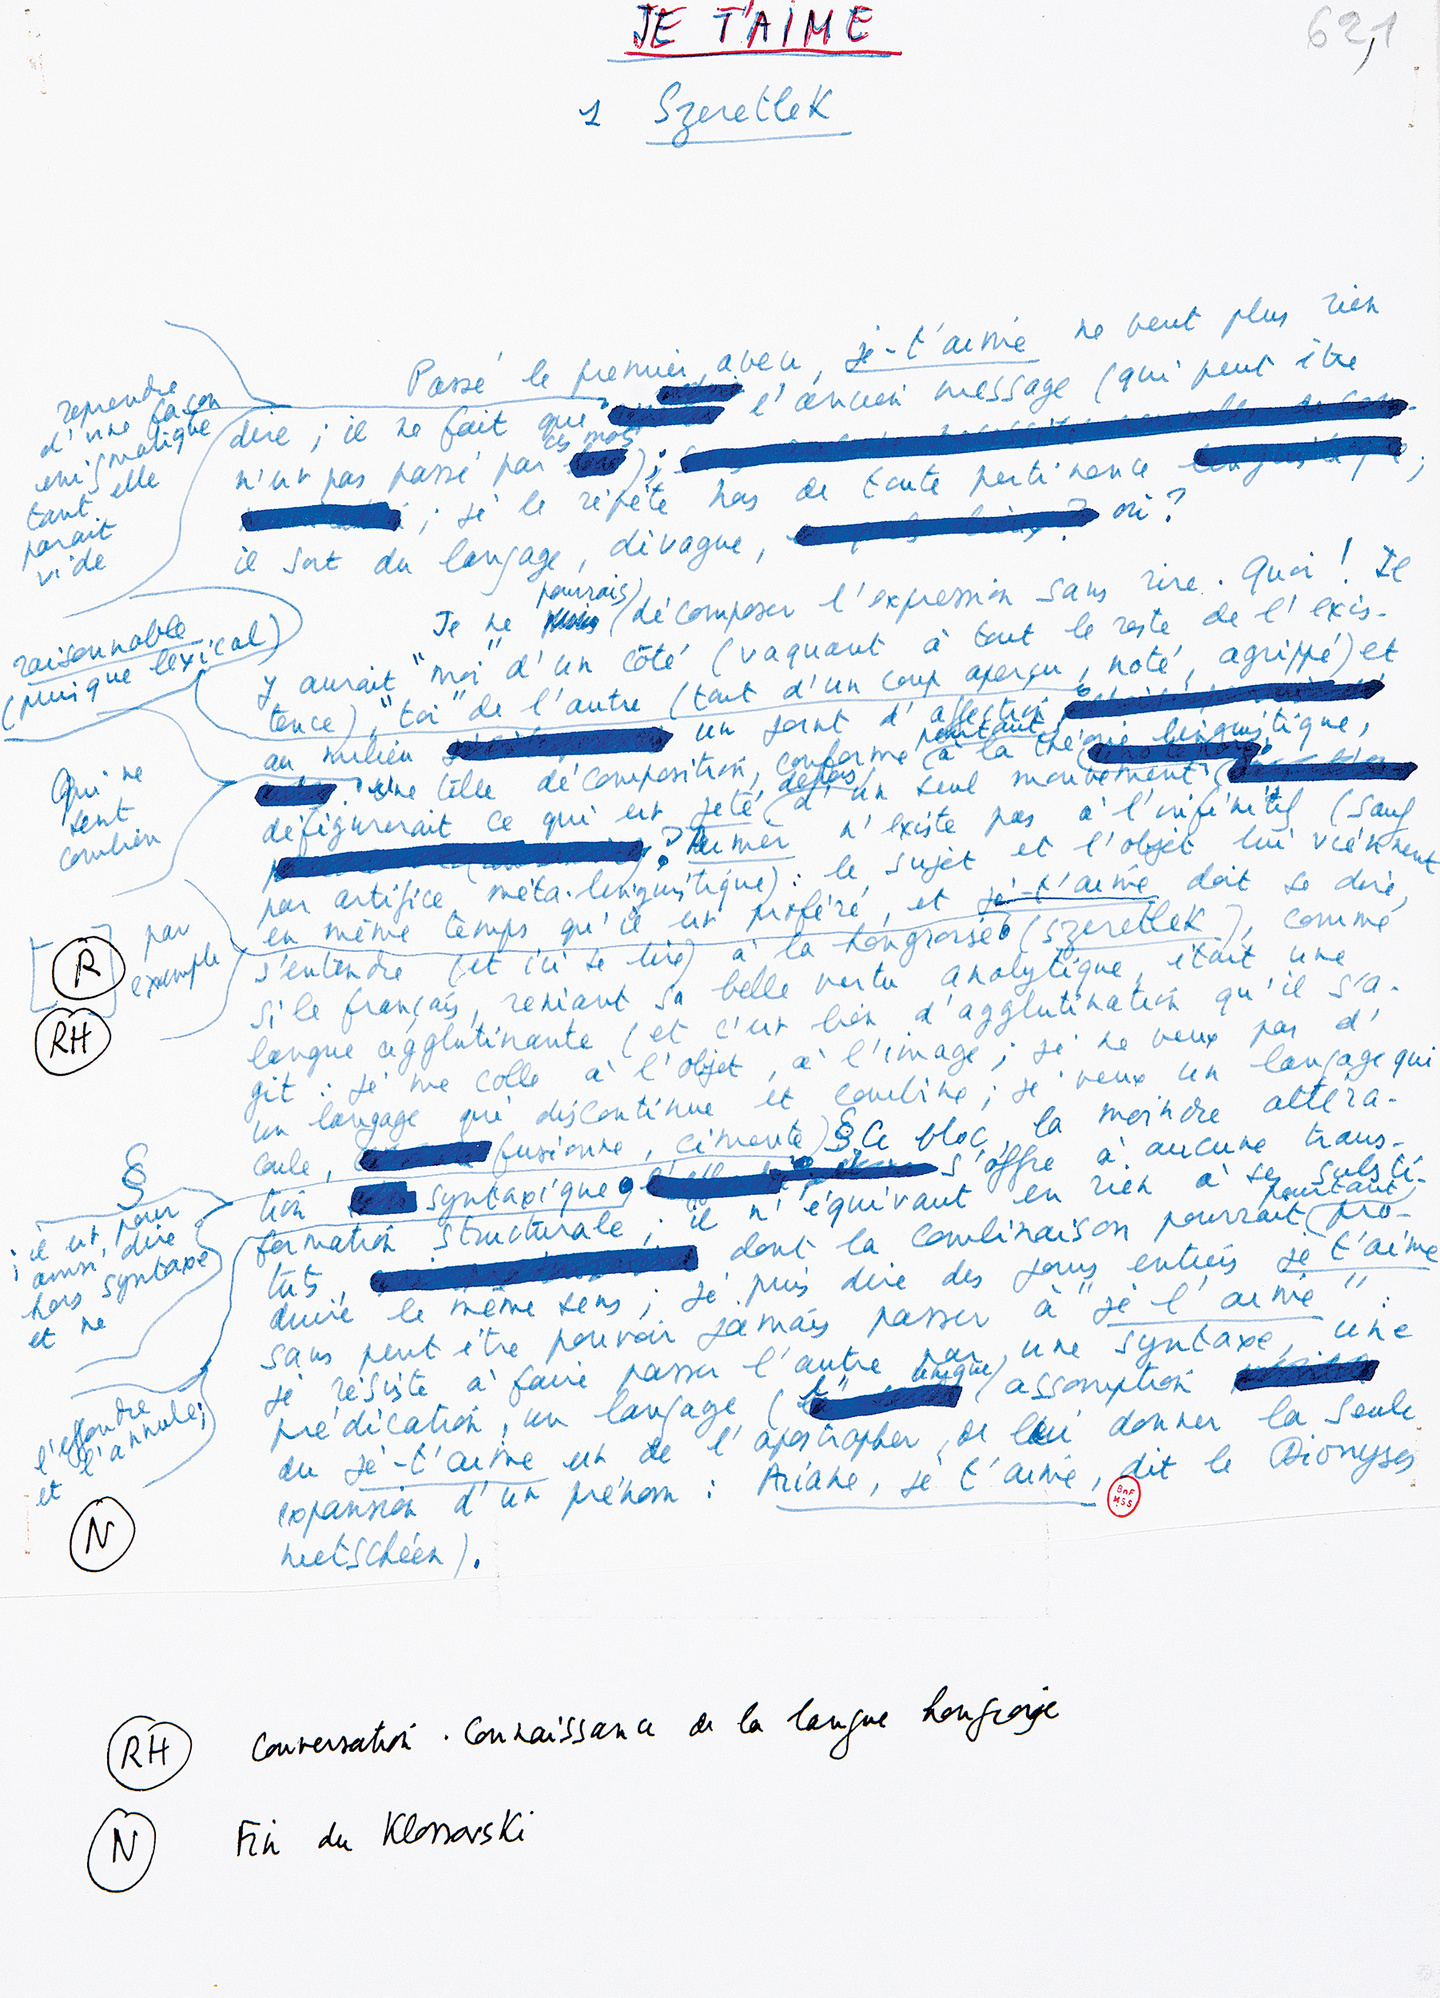 JE T'AIME
62,1
1 Szeretlek
Passé le premier aveu, je-t'aime ne veut plus rien
dire ; il ne fait que l'ancien message (qui peut être
n'est pas passé par ces mots) ;
; je le répète hors de toute pertinence ;
il sort du langage, divague, où ?
Je ne pourrais décomposer l'expression sans rire. Quoi ! Il
y aurait "moi" d'un côté (vaquant à tout le reste de l'exis-
tence), "toi" de l'autre (tout d'un coup aperçu, noté, agrippé) et
au milieu un joint d'affection
. Une telle décomposition, conforme pourtant à la théorie linguistique,
défigurerait ce qui est jeté dehors d'un seul mouvement
? Aimer n'existe pas à l'infinitif (sauf
par artifice méta-linguistique) : le sujet et l'objet lui viennent
en même temps qu'il est proféré, et je-t'aime doit se dire,
s'entendre (et ici se lire) à la hongroise (szeretlek), comme
si le français, reniant sa belle vertu analytique, était une
langue agglutinante (et c'est bien d'agglutination qu'il s'a-
git : je me colle à l'objet, à l'image ; je ne veux pas d'
un langage qui discontinue et combine ; je veux un langage qui
coule, fusionne, cimente) § Ce bloc, la moindre altéra-
tion syntaxique s'offre à aucune trans-
formation structurale ; il n'équivaut en rien à se substi-
tuts, dont la combinaison pourrait pourtant pro-
duire le même sens ; je puis dire des jours entiers je t'aime
sans peut être pouvoir jamais passer à "je l'aime" :
je résiste à faire passer l'autre par une syntaxe, une
prédication, un langage (l'unique assomption
du je-t'aime est de l'apostropher, de lui donner la seule
expansion d'un prénom : Ariane, je t'aime, dit le Dionysos
nietschéen).
reprendre
d'une façon
énigmatique
tant elle
parait
vide
raisonnable
(puisque lexical)
Qui ne
sent
combien
R
par
exemple
RH
§
il est, pour
ainsi dire
hors syntaxe
et ne
l'effondre
et l'annule ;
N
BnF
MSS
RH Conversation. Connaissance de la langue hongroise
N Fin du Klossowski